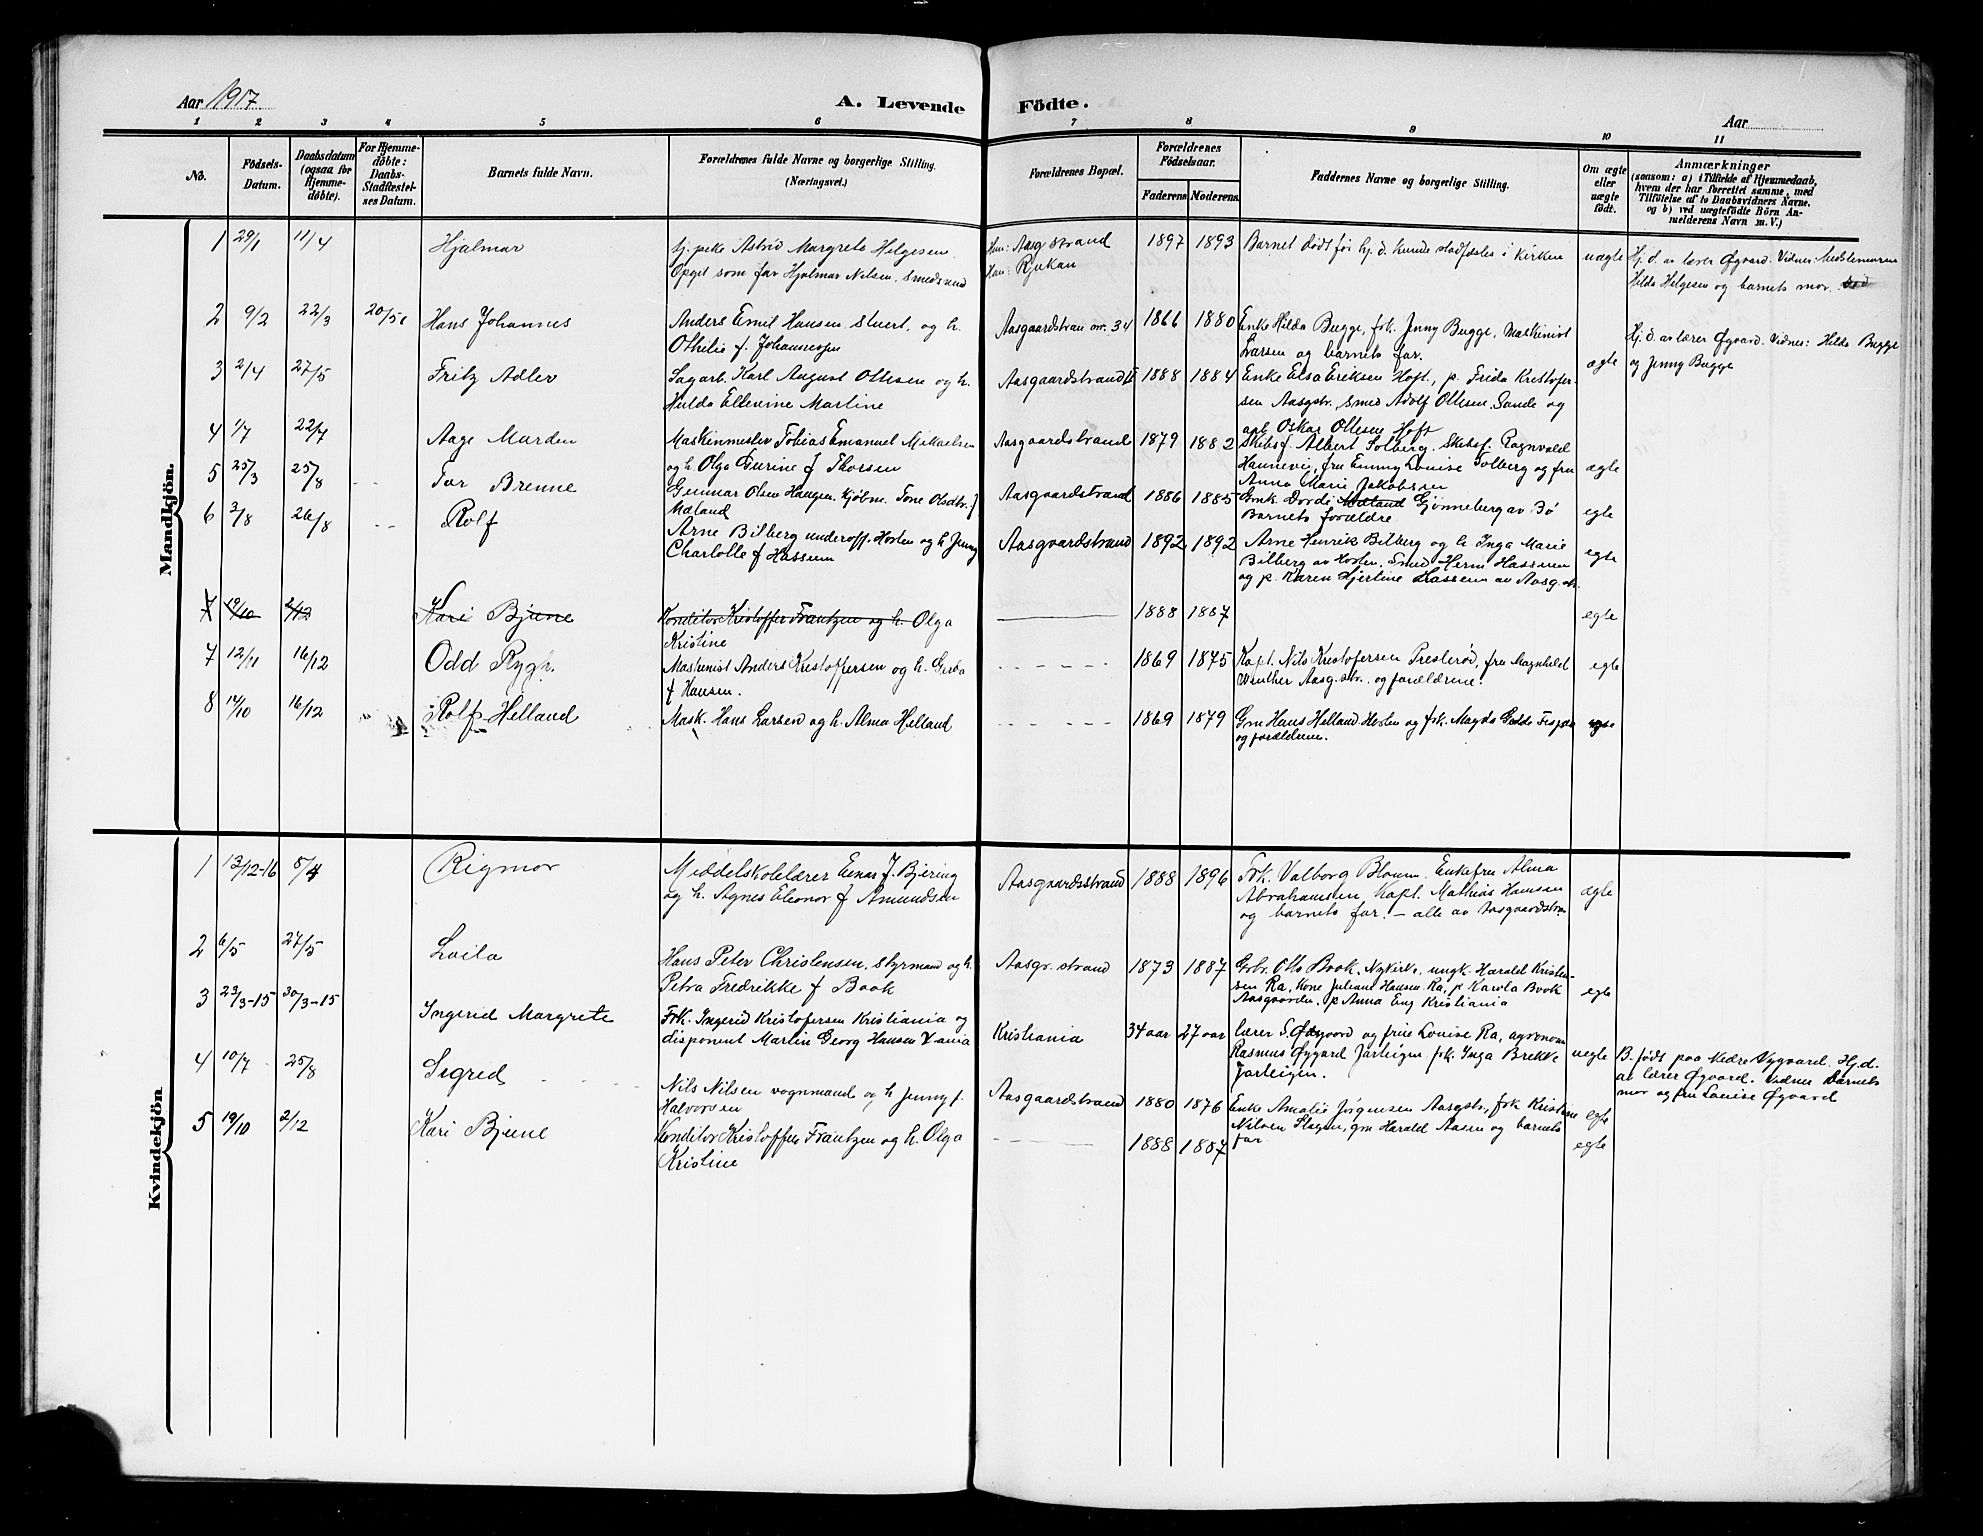 Aar 1917
A. Levende Födte.
Aar
1 2 3 4 5 6 7 8 9 10 11
No.
Födsels-Datum.
Daabsdatum (ogsaa for Hjemme-döbte).
For Hjemme-döbte: Daabs-Stadfæstel-ses Datum.
Barnets fulde Navn.
Forældrenes fulde Navne og borgerlige Stilling.
(Næringsvei.)
Forældrenes Bopæl.
Forældrenes Födselsaar.
Faderens Moderens
Faddernes Navne og borgerlige Stilling.
Om ægte eller uægte födt.
Anmærkninger
(saasom: a) i Tilfælde af Hjemmedaab,
hvem der har forrettet samme, med
Tilföielse af to Daabsvidners Navne.
og b) ved uægtefödte Börn An-
melderens Navn m. V.)
Mandkjön.
1 29/1 11/4 Hjalmar
pike Astrid Margrete Helgesen.
Opget som far Hjalmar Nilsen, smedsvend
Hun: Aasg strand
Han: Rjukan
1897 1893 Barnet død før hj. d. kunde stadfæstes i kirken uægte
Hj. d. av lærer Øgvard. Vidner:
Hilda Helgesen og barnets mor.
2 9/2 22/3 20/5 Hans Johannes
Anders Emil Hansen, stuert, og h.
Othilie f. Johannessen
Aasgaardstran nr. 34 1866 1880
Enke Hilda Bugge, frk. Jenny Bugge, Maskinist
Larsen og barnets far.
Hj. d. av lærer Øgvard. Vidnes: Hilda Bugge
og Jenny Bugge
3 2/4 27/5 Fritz Adler
Sagarb. Karl August Ollesen og h.
Hulda Ellevine Martine
Aasgaardstrand 1888 1884
Enke Elsa Eriksen Hoft., p. Frida Kristofer-
sen Aasgstr. smed Adolf Ollesen Sande og
Oskar Ollesen Hoft
ægte
4 1/7 22/7 Aage Marden
Maskinmester Tobias Emanuel Mikaelsen
og h Olga Gurine f Thorsen
Aasgaardstrand 1879 1882
Skibsf. Albert Solberg. Skibsf. Ragnvald
Hannevig, fru Emmy Louise Solberg og fru
Anna Marie Jakobsen
ægte
5 25/3 25/8 Tor Brenne
Gunnar Olsen Haugen. kjøbm. Tone Olsdtr. f
Mæland
Aasgaardstrand 1886 1885
Gmk. Dordi Mæland Gjønneberg av Bø
Barnets forældre
egte
6 3/8 26/8 Rolf
Arne Bilberg underoff. Horten og h Jenny
Charlotte f Hassum
Aasgaardstrand 1892 1892
Arne Henrik Bilberg og h Inga Marie
Bilberg av Horten, Smed Herm Hassum
og p. Karen Hjertine Hassum av Aasg.str.
egte
7 19/10 2/12 Kari Bjune
Konditor Kristoffer Frantzen og h. Olga
Kristine
1888 1887 egte
7 12/11 16/12 Odd Rygh.
Maskinist Anders Kristoffersen og h. Gerda
f Hansen.
1869 1875
Kapt. Nils Kristofersen Presterød, fru Magnhild
Winther Aasg.str. og forældrene.
egte
8 14/10 16/12 Rolf Helland
Mask. Hans Larsen og h. Alma Helland
1869 1879
Gm Hans Helland Horten og frk. Magda
og forældrene.
egte
Kvindekjön
1 13/12-16 5/4 Rigmor
Middelskolelærer Einar J. Bjering
og h. Agnes Eleonor f Amundsen
Aasgaardsstrand 1888 1896
Frk. Valborg Blomm. Enkefru Alma
Abrahamsen, Kapt. Mathias Hansen
og barnets far. - alle av Aasgaardstran
ægte
2 6/5 27/5 Laila
Hans Peter Christensen, styrmand og h.
Petra Fredrikke f Book
Aasgr. strand 1873 1887
Grbr. Otto Book, Nykirke, ungk. Harald Kristen-
sen Ra, Kone Juliane Hansen Ra, p Karola Book
Aasgaarden, p Anna Eng Kristiania
egte
3 23/3-15 30/3-15 Ingerid Margrete
Frk. Ingerid Kristofersen Kristiania og
disponent Martin Georg Hansen Vania
Kristiania 34 aar 27 aar
lærer S. Øgvard og frue Louise Ra, agronom
Rasmus Øygard Jarleigen, frk. Inga Brekke
Jarleigen.
uegte
B. født paa Nedre Vygvard. Hj. d.
av lærer Øgvard. Vidner Barnets
mor og fru Louise Øgvard
4 10/7 25/8 Sigrid
Nils Nilsen vognmand og h Jenny f.
Halvorsen
Aasgaardstrand 1880 1876
Enke Amalie Jørgensen Aasgstr, frk Kristine
Nilsen Slagen, gm Harald Aasen og barnets
far
egte
5 19/10 2/12 Kari Bjune
Konditor Kristoffer Frantzen og h. Olga
Kristine
1888 1887 egte